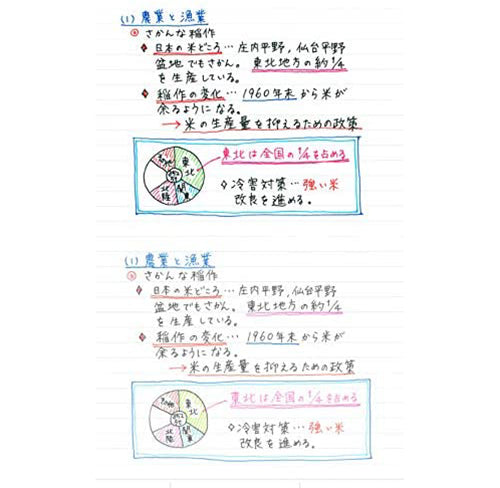 (1) 農業と漁業
◎ さかんな稲作
◆ 日本の米どころ… 庄内平野, 仙台平野
盆地でもさかん。 東北地方の約1/4
を生産している。
◆ 稲作の変化… 1960年末から米が
余るようになる。
→ 米の生産量を抑えるための政策
東北は全国の1/4を占める
東北
関東
北陸
◇冷害対策… 強い米
改良を進める。
(1) 農業と漁業
◎ さかんな稲作
◆ 日本の米どころ… 庄内平野, 仙台平野
盆地でもさかん。 東北地方の約1/4
を生産している。
◆ 稲作の変化… 1960年末から米が
余るようになる。
→ 米の生産量を抑えるための政策
東北は全国の1/4を占める
東北
関東
北陸
◇冷害対策… 強い米
改良を進める。